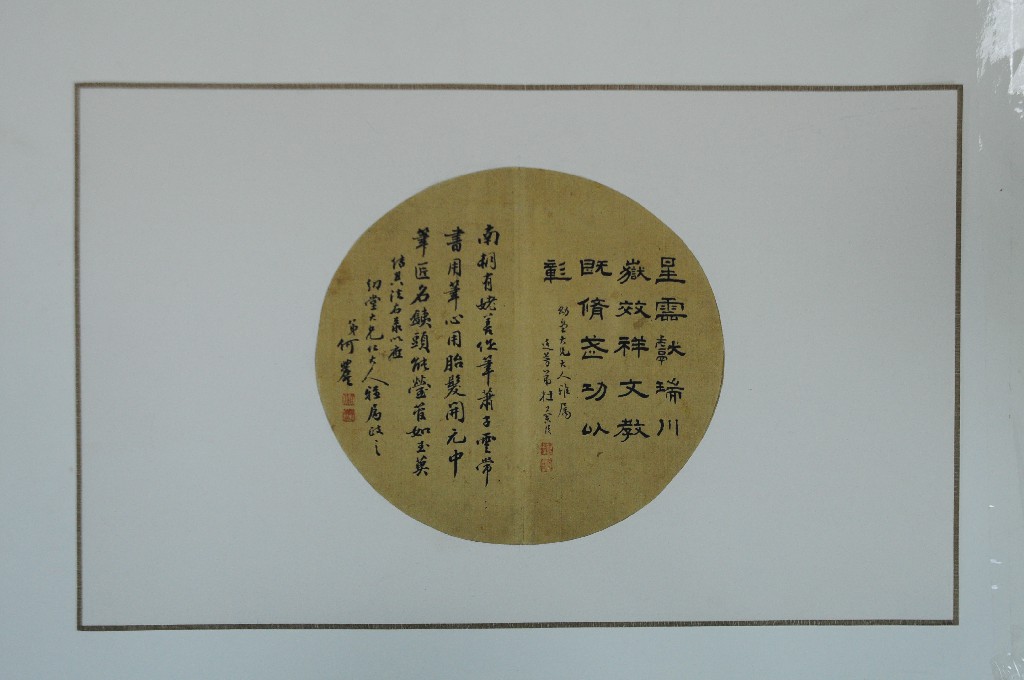 星雲獻瑞川
嶽效祥文教
既脩武功以
彰
幼堂大兄大人雅屬
南朝有姥善作筆蕭子雲常
書用筆心用胎髮開元中
筆匠名鐵頭能瑩管如玉莫
傳其法右录以應
幼堂大兄仁大人雅屬政之
弟何